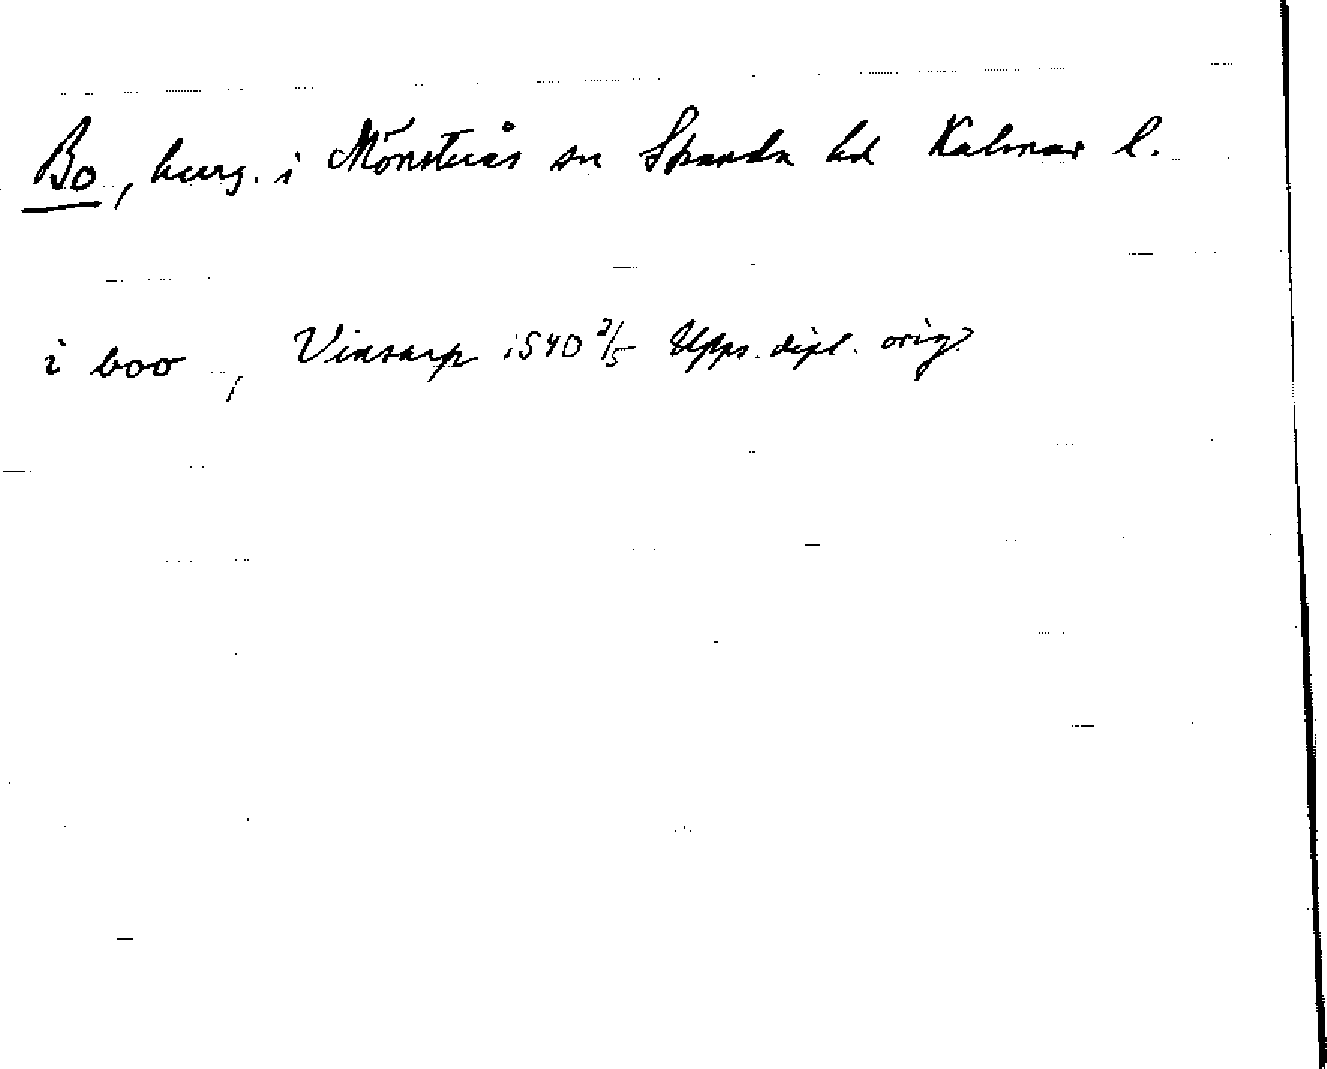 Bo, herrg. i Mönsterås sn Stranda hd Kalmar l.
i boo , Vinsarp 1540 2/5 Upps. dipl. orig.